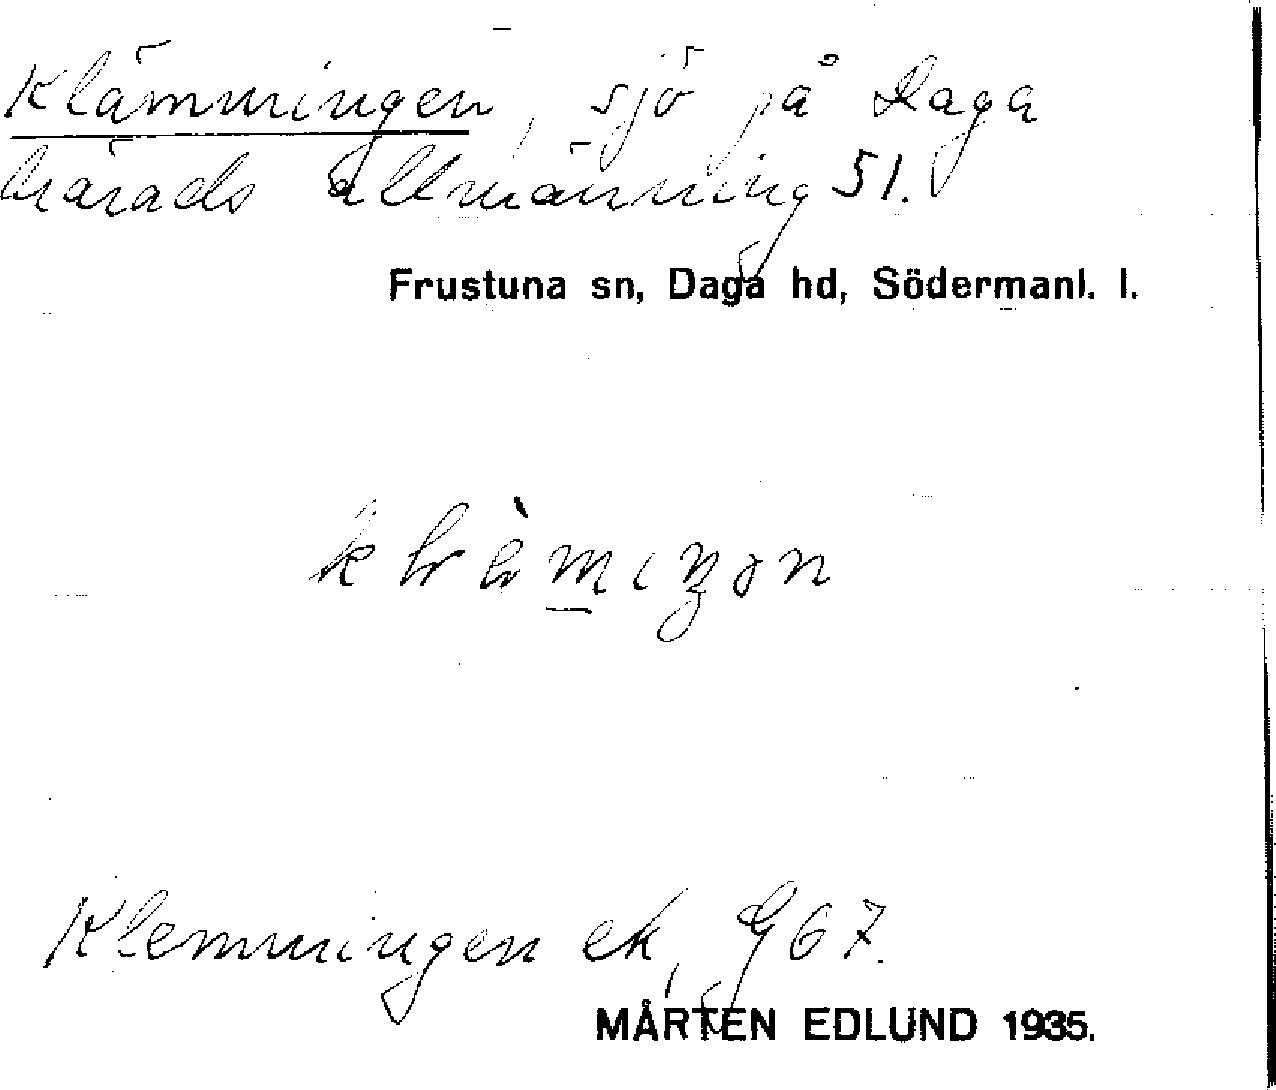 Klämmingen, sjö på Daga
härads allmänning 51.
Frustuna sn, Daga hd, Södermanl. l.
Klemmingen ek, G67.
MÅRTEN EDLUND 1935.